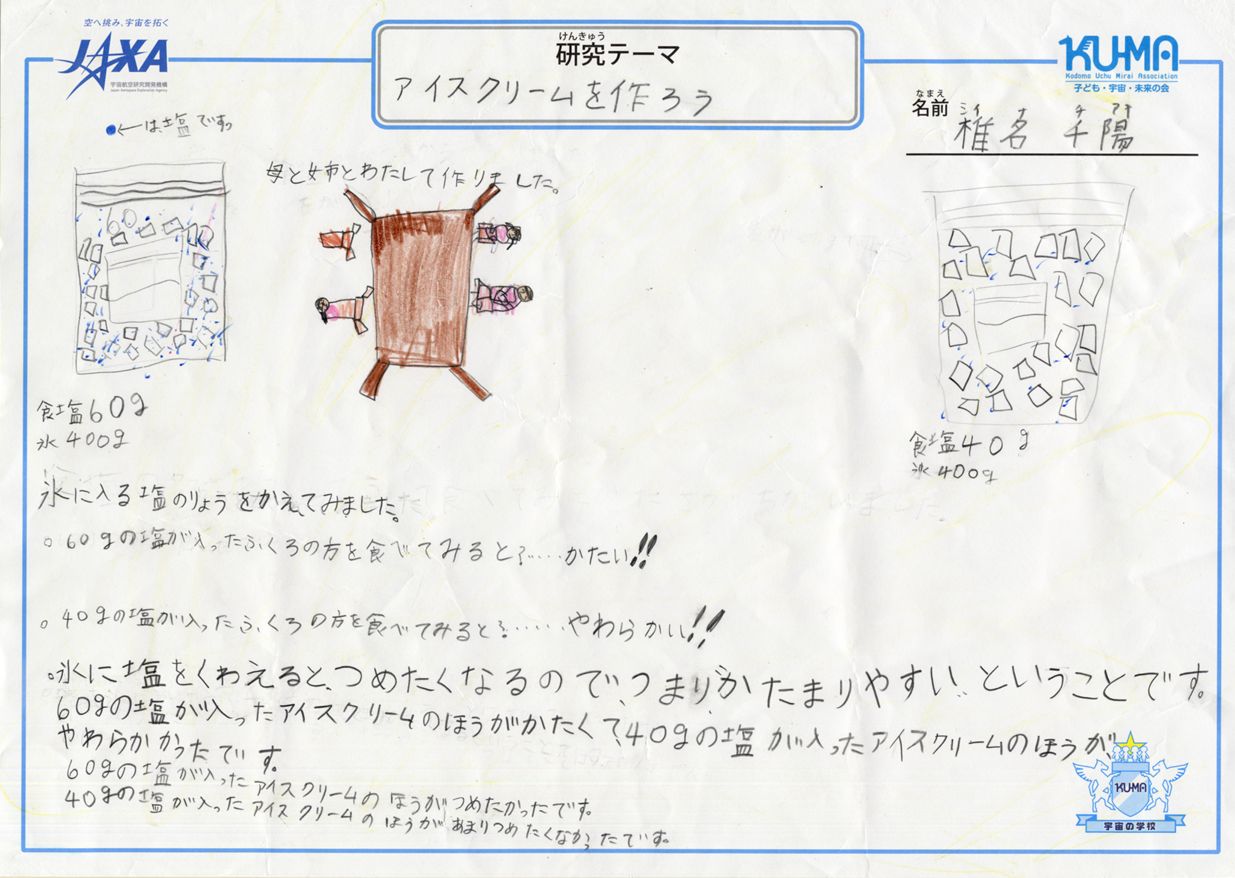 空へ挑み、宇宙を拓く
JAXA
宇宙航空研究開発機構
Japan Aerospace Exploration Agency
けんきゅう
研究テーマ
アイスクリームを作ろう
KU-MA
Kodomo Uchu Mirai Association
子ども・宇宙・未来の会
なまえ
名前
シイ ナ チ アキ
椎名 千陽
●←は塩です。
母と姉とわたしで作りました。
食塩60g
氷400g
食塩40g
氷400g
氷に入る塩のりょうをかえてみました。
○60gの塩が入ったふくろの方を食べてみると?……かたい!!
○40gの塩が入ったふくろの方を食べてみると?……やわらかい!!
○氷に塩をくわえると、つめたくなるので、つまり、"かたまりやすい"ということです。
60gの塩が入ったアイスクリームのほうがかたくて、40gの塩が入ったアイスクリームのほうが、
やわらかかったです。
60gの塩が入ったアイスクリームのほうがつめたかったです。
40gの塩が入ったアイスクリームのほうがあまりつめたくなかったです。
KU-MA
宇宙の学校